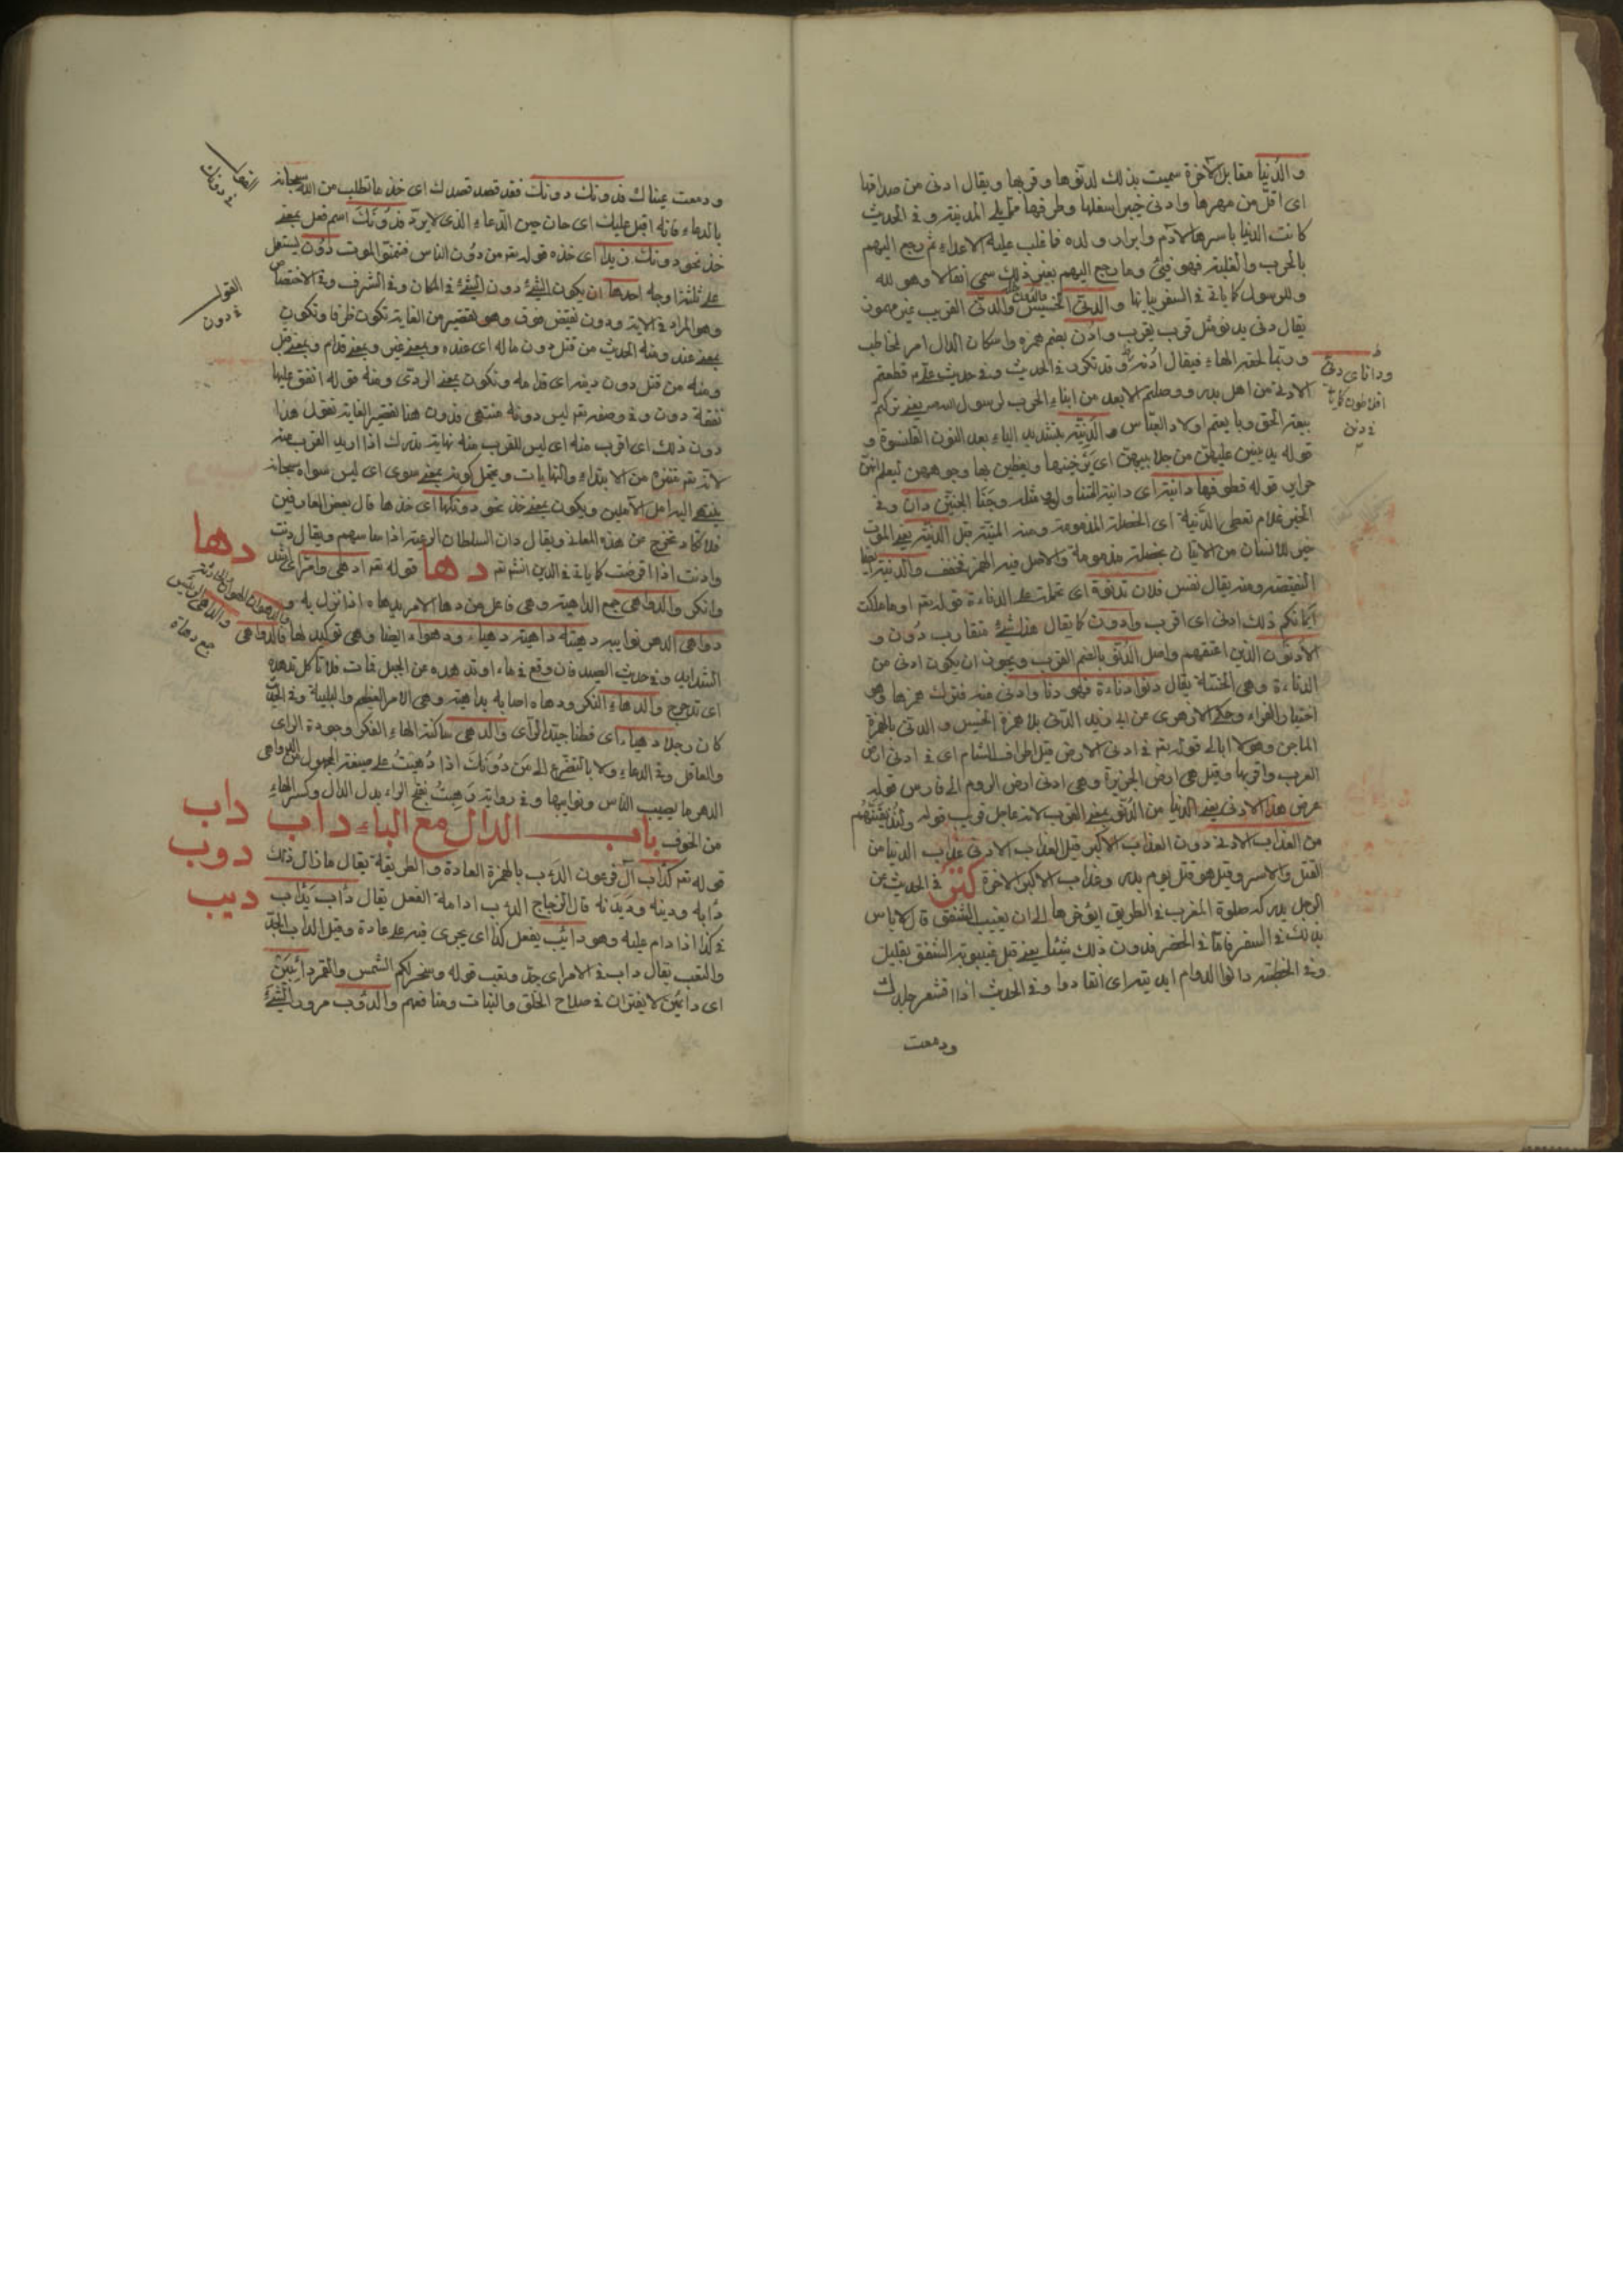 والدُنيا مقابل الآخرة سميت بذلك لدنوّها وقربها ويقال ادنى من صداقها
اى اقلّ من مهرها وادنى خيبر اسفلها وطرفها ممّا يلى المدينة وفى الحديث
كانت الدنيا باسرها لآدم وابراد ولده فما غلب عليه الاعداء ثم رجع اليهم
بالحرب والغلبة فهو فئ وما رجع اليهم بغير ذلك سمى انفالا وهو لله
وللرسول كما ياتى فى السفر بيانها والدنىّ الخسيس والدنىّ القريب غير مهموز
يقال دنى يدنو مثل قرب يقرب وادن بضم همزه واسكان الدال امر لمخاطب
وربّما لحقه الهاء فيقال ادنه وقد تكرر فى الحديث وفى حديث علىّ قطعتم
الادنى من اهل بدر ووصلتم الابعد من ابناء الحرب لرسول الله يعنى تركتم
بيعة الحق وبايعتم اولاد العبّاس والدنيّة بتشديد الياء بعد النون القلنسوة و
قوله يدنين عليهنّ من جلابيبهنّ اى يرخينها ويغطين بها وجوههن ليعلم انهنّ
حراير قوله قطوفها دانية اى دانية المتناول ومثله وجنا الجنتين دان وفى
الخبر علام نعطى الدنية اى الخصلة المذمومة ومنه المنيّة قبل الدنيّة يعنى الموت
خير للانسان من الاتيان بخصلة مذمومة والاصل فيه الهمز فخفف والدنية ايضا
النقيصة ومنه يقال نفس فلان تدنؤه اى تحمله على الدناءة قوله تعـ او ما ملكت
ايمانكم ذلك ادنى اى اقرب وادون كما يقال هذا شئ متقارب دون و
الادنون الذين اعتقهم واصل الدنوّ بالضم القرب ويجوز ان يكون ادنى من
الدناءة وهى الخسّة يقال دنوا دناءة فهو دنا وادنى منه فترك همزها وهو
اختيار الفراء وحكى الازهرى عن ابى زيد الدنى بلا همزة الخسيس والدنئ بالهمزة
الماجن وهو لا ابالى قوله تعـ فى ادنى الارض قيل اطراف الشام اى فى ادنى ارض
العرب واقربها وقيل هى ارض الجزيرة وهى ادنى ارض الروم الى فارس قوله
عرض هذا الادنى يعنى الدنيا من الدنوّ بمعنى القرب لانه عاجل قريب قوله ولنذيقنّهم
من العذاب الادنى دون العذاب الاكبر قيل العذاب الادنى عذاب الدنيا من
القتل والاسر وقيل هو قتل يوم بدر وعذاب الاكبر الاخرة فى الحديث عن
الرجل يدركه صلوة المغرب فى الطريق ايؤخرها الى ان يغيب الشفق قال لا باس
بذلك فى السفر فامّا فى الحضر فدون ذلك شيئا يعنى قبل غيبوبة الشفق بقليل
وفى الخطبة دانوا الدوام ابديته اى انقادوا وفى الحديث اذا اقشعر جلدك
ودمعت
ودانا اى دنى
افلاطون كما ياتى
فى دنن
ودمعت عيناك فدونك دونك فقد قصد قصدك اى خذ ما تطلب من الله سبحانه
بالدعاء فانه اقبل عليك اى حان حين الدّعاء الذى لا يردّ فدونك اسم فعل بمعنى
خذ نحو دونك زيدا اى خذه قوله تعـ من دون الناس فتمنّوا الموت دون يستعمل
على ثلثة اوجه احدها ان يكون الشئ دون الشئ فى المكان وفى الشرف وفى الاختصاص
وهو المراد فى الاية ودون نقيض فوق وهو تقصير من الغاية تكون ظرفا وتكون
بمعنى عند ومنه الحديث من قتل دون ماله اى عنده وبمعنى غير وبمعنى قدام وبمعنى قبل
ومنه من قتل دون دينه اى قدامه وتكون بمعنى الردى ومنه قوله انفق عليها
نفقة دون وفى وصفه تعـ ليس دونه منتهى فدون هنا تقصير الغاية تقول هذا
دون ذلك اى اقرب منه اى ليس للقرب منه نهاية تدرك اذا اريد القرب منه
لانه تعـ منزه من الابتداء والنهايات ويحتمل كونه بمعنى سوى اى ليس سواه سبحانه
ينتهى اليه امل الآملين ويكون بمعنى خذ نحو دونكها اى خذها قال بعض العارفين
فلا تكاد تخرج من هذه المعانى ويقال دان السلطان الرعية اذا ساسهم ويقال دنت
وادنت اذا اقرضت كما ياتى فى الدين انشـ تعـ دها قوله تعـ ادهى وامرّ اى اشد
وانكر والدواهى جمع الداهية وهى فاعل من دها الامر يدهاه اذا نزل به و
دواهى الدهر نوايبه دهيته داهية دهياء ودهواء ايضا وهى توكيد لها فالدواهى
الشدايد وفى حديث الصيد فان وقع فى ماء او تدهده من الجبل فمات فلا تاكل تدهده
اى تدحرج والدهاء النكر ودهاه اصابه بداهية وهى الامر العظيم والبلية وفى الخبر
كان رجلا دهياء اى فطنا جيّد الرأى والدهى ساكنة الهاء الفكر وجودة الراى
والعاقل وفى الدعاء ولا بالتضرع الى من دونك اذا دُهيت على صيغة المجهول من الدواهى
الدهر ما يصيب الناس ونوايبها وفى رواية رَهِبتُ بفتح الراء بدل الدال وكسر الهاء
من الخوف باب الدال مع الباء داب
قوله تعـ كدأب آل فرعون الدأب بالهمزة العادة والطريقة يقال ما زال ذلك
دأبه ودينه وديدنه قال الزجاج الدأب ادامة الفعل يقال دأب يدأب
فى كذا اذا دام عليه وهو دائب يفعل كذا اى يجرى فيه على عادة وقيل الداب الجدّ
والتعب يقال داب فى الامر اى جد وتعب قوله وسخر لكم الشمس والقمر دائبين
اى دائمين لا يفتران فى صلاح الخلق والنبات ومنافعهم والدؤب مرور الشئ
القول
فى دونك
القول
فى دون
دها
والدهى الرئيس
جمع دهاة
داب
دوب
ديب